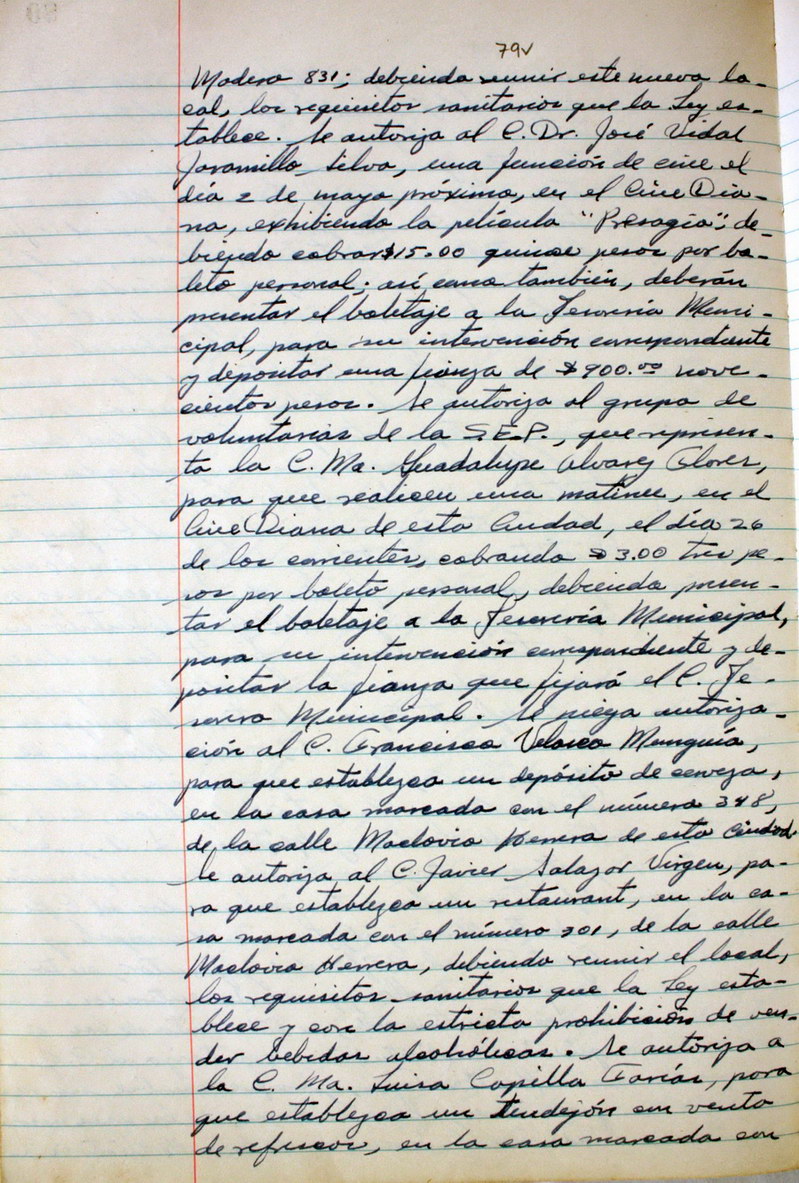 79v
Madero 831; debiendo reunir este nuevo lo-
cal, los requisitos sanitarios que la Ley es-
tablece. Se autoriza al C. Dr. José Vidal
Jaramillo Silva, una función de cine el
día 2 de mayo próximo, en el Cine Dia-
na, exhibiendo la película "Presagio"; de-
biendo cobrar $15.00 quince pesos por bo-
leto personal; así como también, deberán
presentar el boletaje a la Tesorería Muni-
cipal, para su intervención correspondiente
y depositar una fianza de $900.00 nove-
cientos pesos. Se autoriza al grupo de
voluntarias de la S.E.P., que represen-
ta la C. Ma. Guadalupe Alvarez Flores,
para que realicen una matinee, en el
Cine Diana de esta Ciudad, el día 26
de los corrientes, cobrando $3.00 tres pe-
sos por boleto personal, debiendo presen-
tar el boletaje a la Tesorería Municipal,
para su intervención correspondiente y de-
positar la fianza que fijará el C. Te-
sorero Municipal. Se niega autoriza-
ción al C. Francisco Velasco Munguía,
para que establezca un depósito de cerveza,
en la casa marcada con el número 348,
de la calle Maclovio Herrera de esta Ciudad.
Se autoriza al C. Javier Salazar Virgen, pa-
ra que establezca un restaurant, en la ca-
sa marcada con el número 301, de la calle
Maclovio Herrera, debiendo reunir el local,
los requisitos sanitarios que la Ley esta-
blece y con la estricta prohibición de ven-
der bebidas alcohólicas. Se autoriza a
la C. Ma. Luisa Capilla Farías, para
que establezca un tendejón con venta
de refrescos, en la casa marcada con